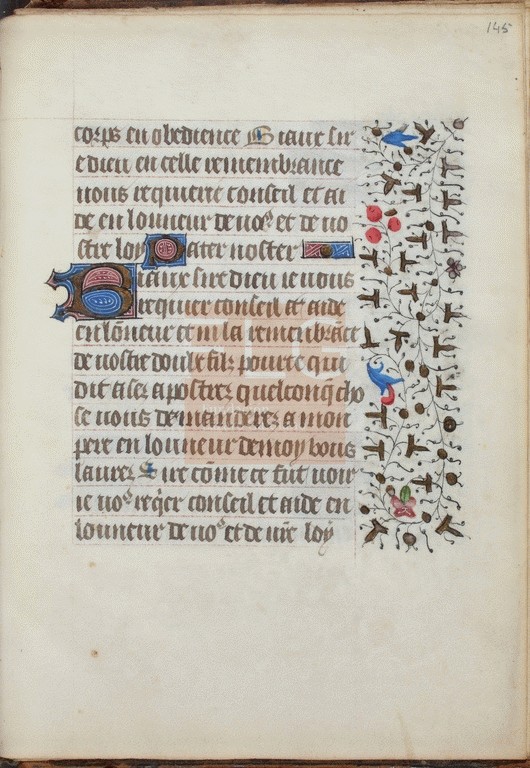 145
corps en obedience Biaux sir
e dieu en celle remembrance
vous requiere conseil et ai
de en lonneur de noꝰ et de vo
stre loy Pater noster
Biaux sire dieu ie vous
requier conseil et aide
en lōneur et en la remenbrāce
de vostre doulz filz pour ce qui
dit a ses apostrez quelconq̄ cho
se vous demanderez a mon
pere en lonneur de moy vous
laurez Sire cōme ce fut voir
ie voꝰ req̄er conseil et aide en
lonneur de voꝰ et de vr̄e loy